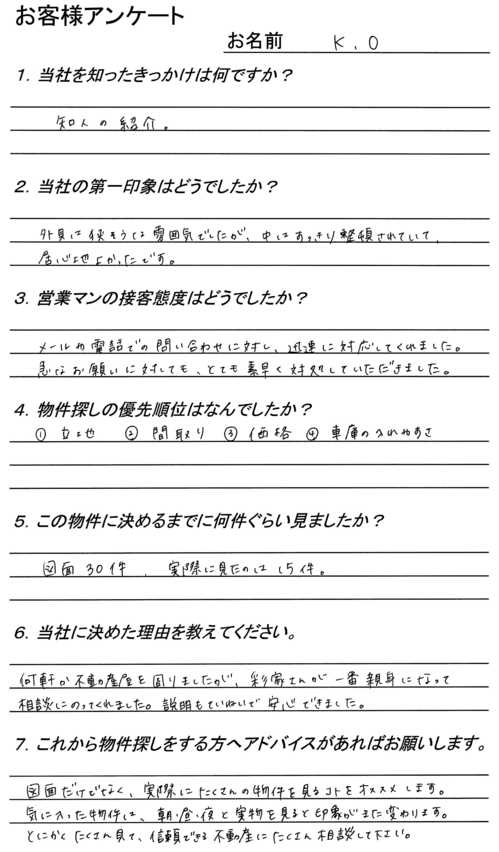 お客様アンケート
お名前 K.O
1. 当社を知ったきっかけは何ですか？
知人の紹介。
2. 当社の第一印象はどうでしたか？
外見は狭そうな雰囲気でしたが、中はすっきり整頓されていて、
居心地よかったです。
3. 営業マンの接客態度はどうでしたか？
メールや電話での問い合わせに対し、迅速に対応してくれました。
急なお願いに対しても、とても素早く対処していただきました。
4. 物件探しの優先順位はなんでしたか？
① 立地 ② 間取り ③ 価格 ④ 車庫の入れやすさ
5. この物件に決めるまでに何件ぐらい見ましたか？
図面30件、実際に見たのは15件。
6. 当社に決めた理由を教えてください。
何軒か不動産屋を回りましたが、彩家さんが一番親身になって
相談にのってくれました。説明もていねいで安心できました。
7. これから物件探しをする方へアドバイスがあればお願いします。
図面だけでなく、実際にたくさんの物件を見るコトをオススメします。
気に入った物件は、朝・昼・夜と実物を見ると印象がまた変わります。
とにかくたくさん見て、信頼できる不動産にたくさん相談して下さい。